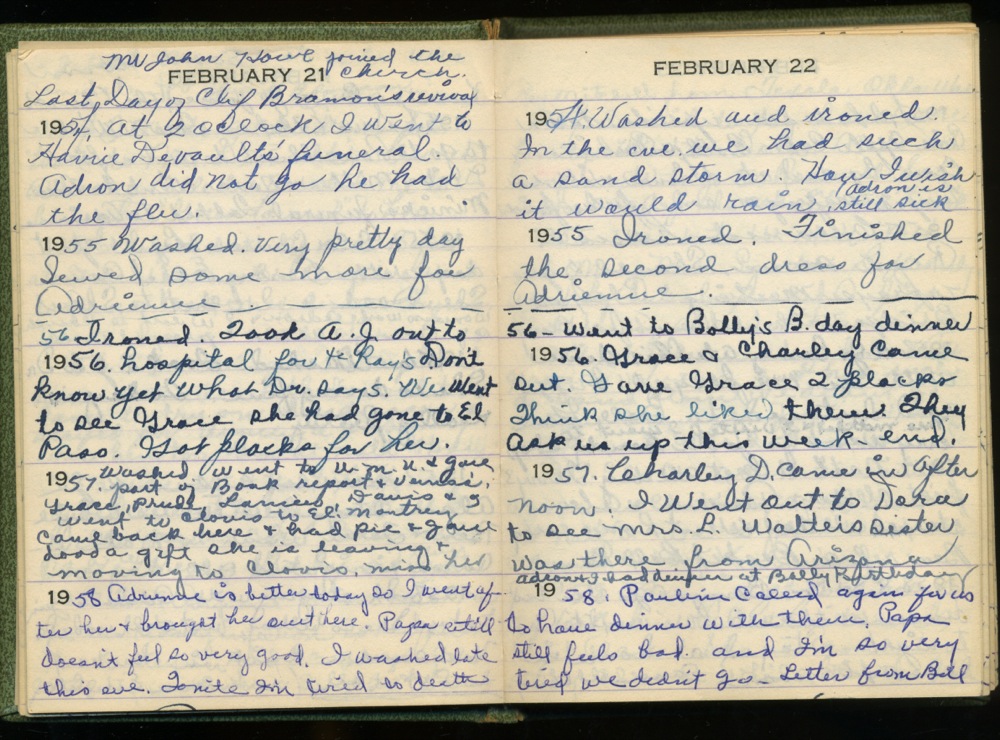 Mr John Howe joined the
FEBRUARY 21 church.
Last Day of Clif Bramon's revival
1954, At 2 oclock I went to
Devault's funeral.
Adron did not go he had
the flu.
1955 Washed. Very pretty day
Sewed some more for
Adrienne.
56 Ironed. Took A. J. out to
1956. hospital for X Ray's. Don't
know yet what Dr. says. We went
to see Grace she had gone to El
Paso. Got flocks for her.
Washed went to W. M. U. & gave
1957. part of Book report &
Grace, Prude, Davis & I
went to Clovis to El Montrey
came back here & had pie & gave
a gift she is leaving &
moving to Clovis, miss her
1958 Adrienne is better today so I went af-
ter her & brought her out here. Papa still
doesn't feel so very good. I washed late
this eve. Tonite I'm tired to death
FEBRUARY 22
1954. Washed and ironed.
In the eve. we had such
a sand storm. How I wish
it would rain. Adron is
still sick
1955 Ironed. Finished
the second dress for
Adrienne.
56 - Went to Bolly's B. day dinner
1956. Grace & Charley came
out. Gave Grace 2 flocks
Think she liked them. They
ask us up this week-end.
1957. Charley D. came in after
noon. I went out to Dora
to see Mrs. L. sister
was there from Arizona
Adron & I had dinner at Bolly Birthday
1958. Pauline called again for us
to have dinner with them, Papa
still feels bad. and I'm so very
tired we didn't go - Letter from Bill